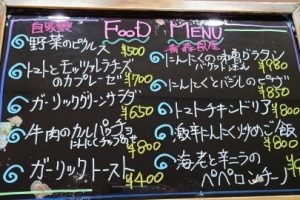 FOOD MENU
自家製
野菜のピクルス
¥500
トマトとモッツァレラチーズ
のカプレーゼ ¥700
ガーリックグリーンサラダ
¥650
牛肉のカルパッチョ
にんにくチップ
¥800
ガーリックトースト
¥400
青森県産
にんにくの味噌グラタン
バゲット
¥980
にんにくとバジルのピザ
¥850
トマトチキンドリア
¥800
激辛にんにく炒めご飯
¥800
海老と辛ニラの
ペペロンチーノ